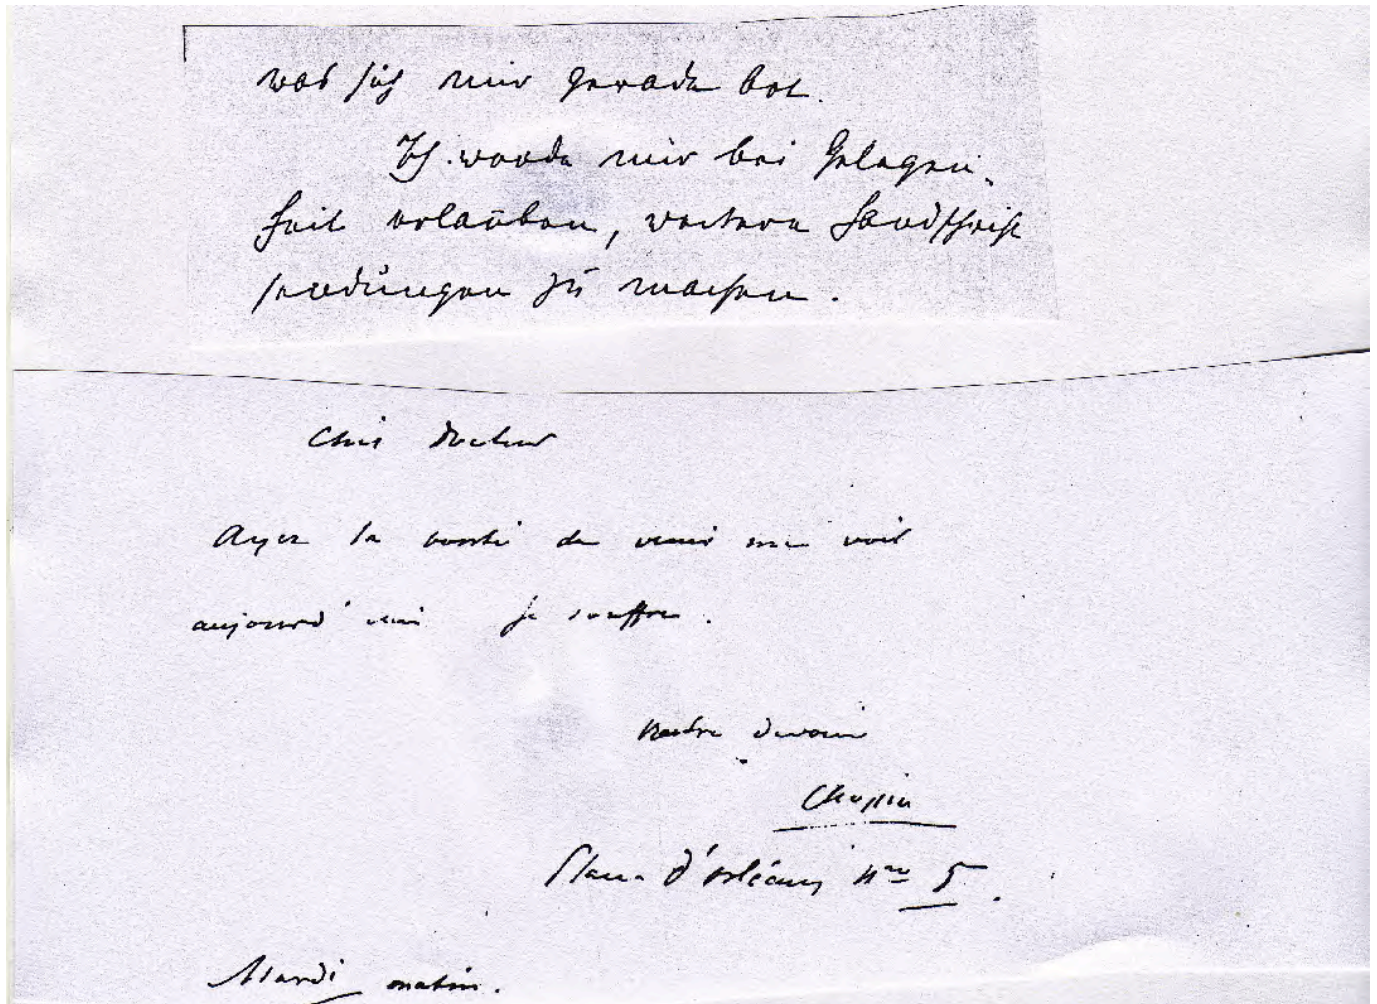 was sich mir gerade bot.
Ich werde mir bei Gelegen-
heit erlauben, weitere Handschrift
sendungen zu machen.
Cher Docteur
Ayez la bonté de venir me voir
aujourd'hui je souffre.
Votre devoué
Chopin
Place d'Orléans Nro 5.
Mardi matin.